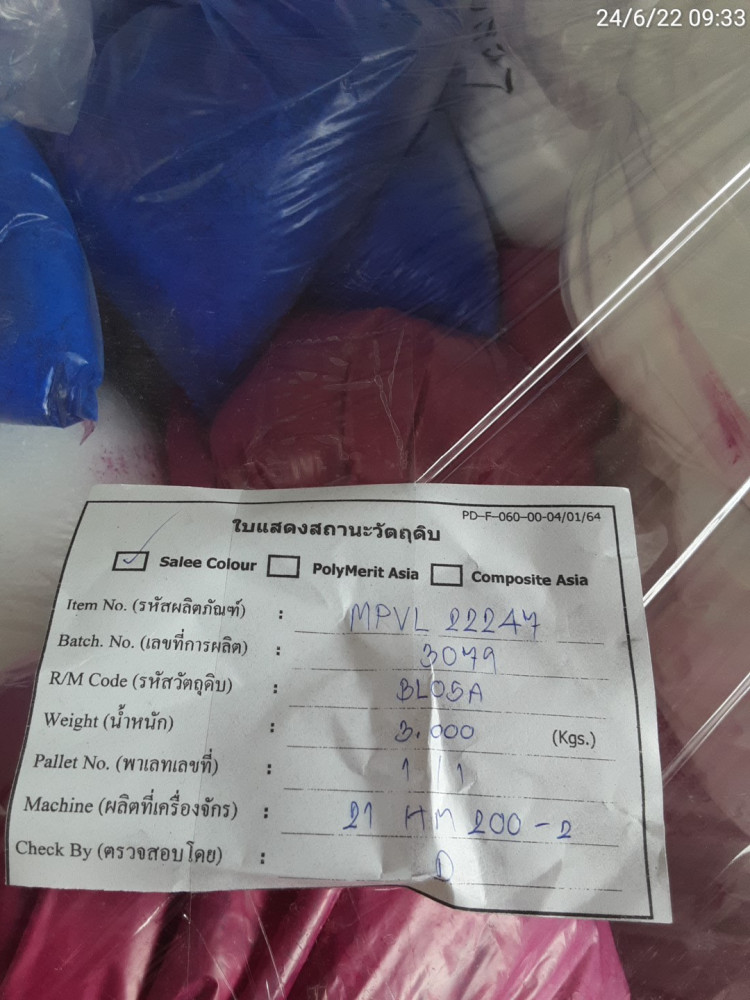 24/6/22 09:33
PD-F-060-00-04/01/64
ใบแสดงสถานะวัตถุดิบ
Salee Colour PolyMerit Asia Composite Asia
Item No. (รหัสผลิตภัณฑ์) : MPVL 22247
Batch. No. (เลขที่การผลิต) : 3079
R/M Code (รหัสวัตถุดิบ) :
Weight (น้ำหนัก) : 3.000 (Kgs.)
Pallet No. (พาเลทเลขที่) : 1/1
Machine (ผลิตที่เครื่องจักร) : 21 HM 200-2
Check By (ตรวจสอบโดย) :